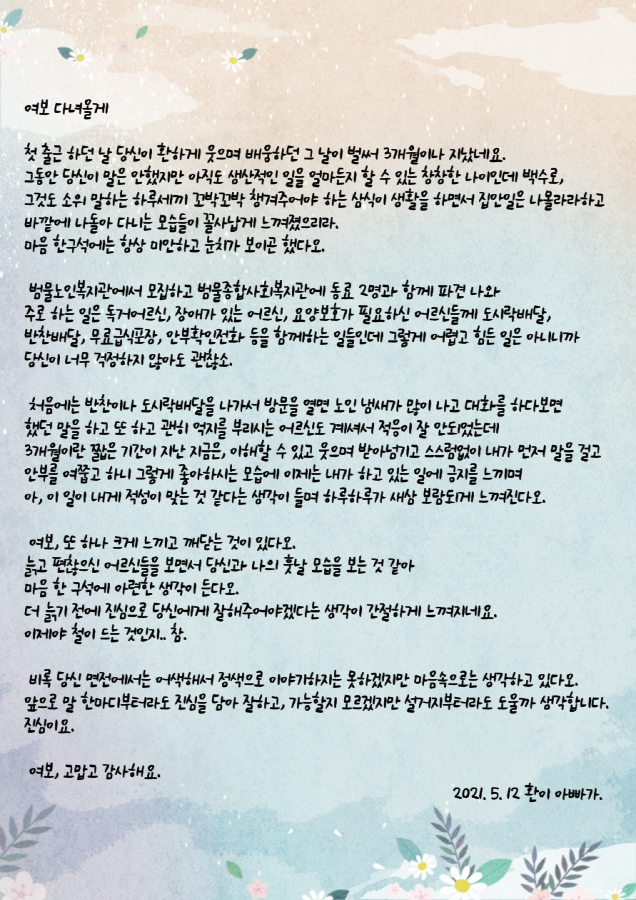 여보 다녀올게
첫 출근 하던 날 당신이 환하게 웃으며 배웅하던 그 날이 벌써 3개월이나 지났네요.
그동안 당신이 말은 안했지만 아직도 생산적인 일을 얼마든지 할 수 있는 창창한 나이인데 백수로,
그것도 소위 말하는 하루세끼 꼬박꼬박 챙겨주어야 하는 삼식이 생활을 하면서 집안일은 나몰라라하고
바깥에 나돌아 다니는 모습들이 꼴사납게 느껴졌으리라.
마음 한구석에는 항상 미안하고 눈치가 보이곤 했다오.
범물노인복지관에서 모집하고 범물종합사회복지관에 동료 2명과 함께 파견 나와
주로 하는 일은 독거어르신, 장애가 있는 어르신, 요양보호가 필요하신 어르신들께 도시락배달,
반찬배달, 무료급식포장, 안부확인전화 등을 함께하는 일들인데 그렇게 어렵고 힘든 일은 아니니까
당신이 너무 걱정하지 않아도 괜찮소.
처음에는 반찬이나 도시락배달을 나가서 방문을 열면 노인 냄새가 많이 나고 대화를 하다보면
했던 말을 하고 또 하고 괜히 억지를 부리시는 어르신도 계셔서 적응이 잘 안되었는데
3개월이란 짧은 기간이 지난 지금은, 이해할 수 있고 웃으며 받아넘기고 스스럼없이 내가 먼저 말을 걸고
안부를 여쭙고 하니 그렇게 좋아하시는 모습에 이제는 내가 하고 있는 일에 긍지를 느끼며
아, 이 일이 내게 적성이 맞는 것 같다는 생각이 들며 하루하루가 새삼 보람되게 느껴진다오.
여보, 또 하나 크게 느끼고 깨닫는 것이 있다오.
늙고 편찮으신 어르신들을 보면서 당신과 나의 훗날 모습을 보는 것 같아
마음 한 구석에 아련한 생각이 든다오.
더 늙기 전에 진심으로 당신에게 잘해주어야겠다는 생각이 간절하게 느껴지네요.
이제야 철이 드는 것인지.. 참.
비록 당신 면전에서는 어색해서 정색으로 이야기하지는 못하겠지만 마음속으로는 생각하고 있다오.
앞으로 말 한마디부터라도 진심을 담아 잘하고, 가능할지 모르겠지만 설거지부터라도 도울까 생각합니다.
진심이요.
여보, 고맙고 감사해요.
2021. 5. 12 환이 아빠가.